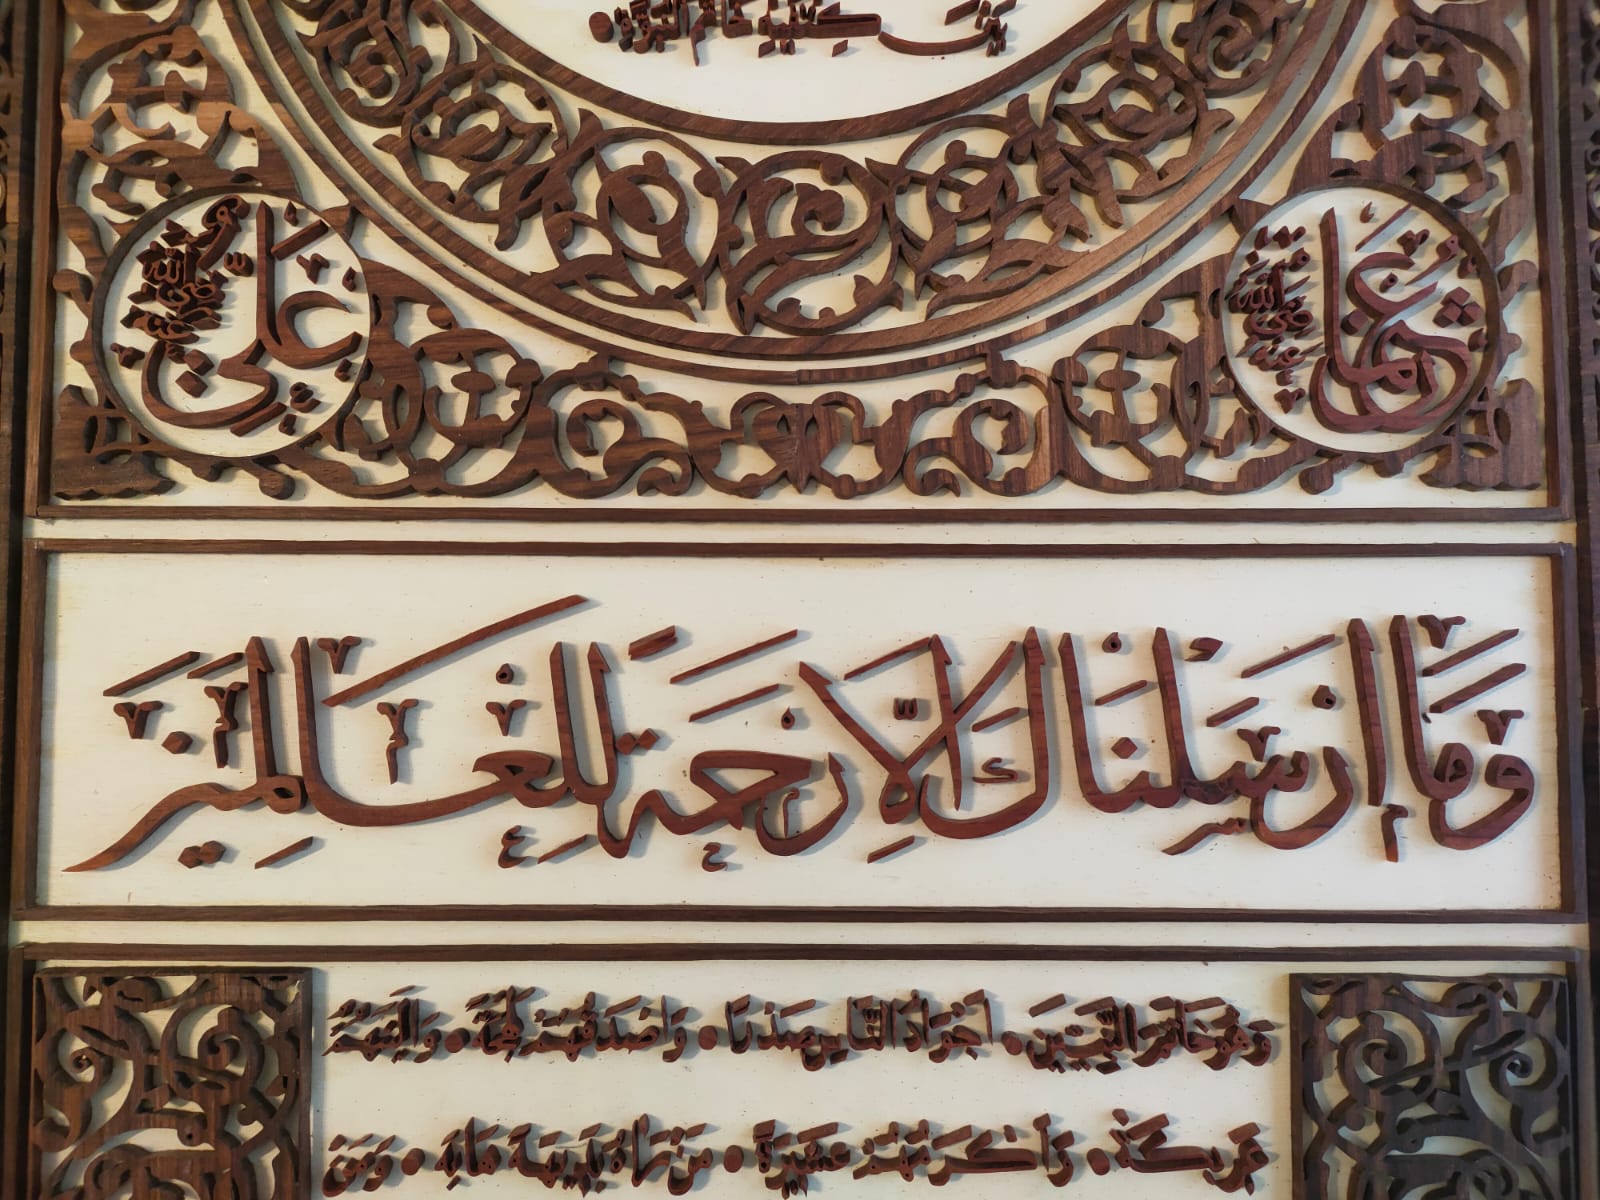 بَيْنَ كَتِفَيْهِ خَاتَمُ النُّبُوَّةِ •
عُثْمَان رضي الله عنه
عَلِيّ رضي الله عنه
وَمَا أَرْسَلْنَاكَ إِلَّا رَحْمَةً لِلْعَالَمِينَ
وَهُوَ خَاتَمُ النَّبِيِّينَ • أَجْوَدُ النَّاسِ صَدْرًا • وَأَصْدَقُهُمْ لَهْجَةً • وَأَلْيَنُهُمْ
عَرِيكَةً • وَأَكْرَمُهُمْ عَشِيرَةً • مَنْ رَآهُ بَدِيهَةً هَابَهُ • وَمَنْ